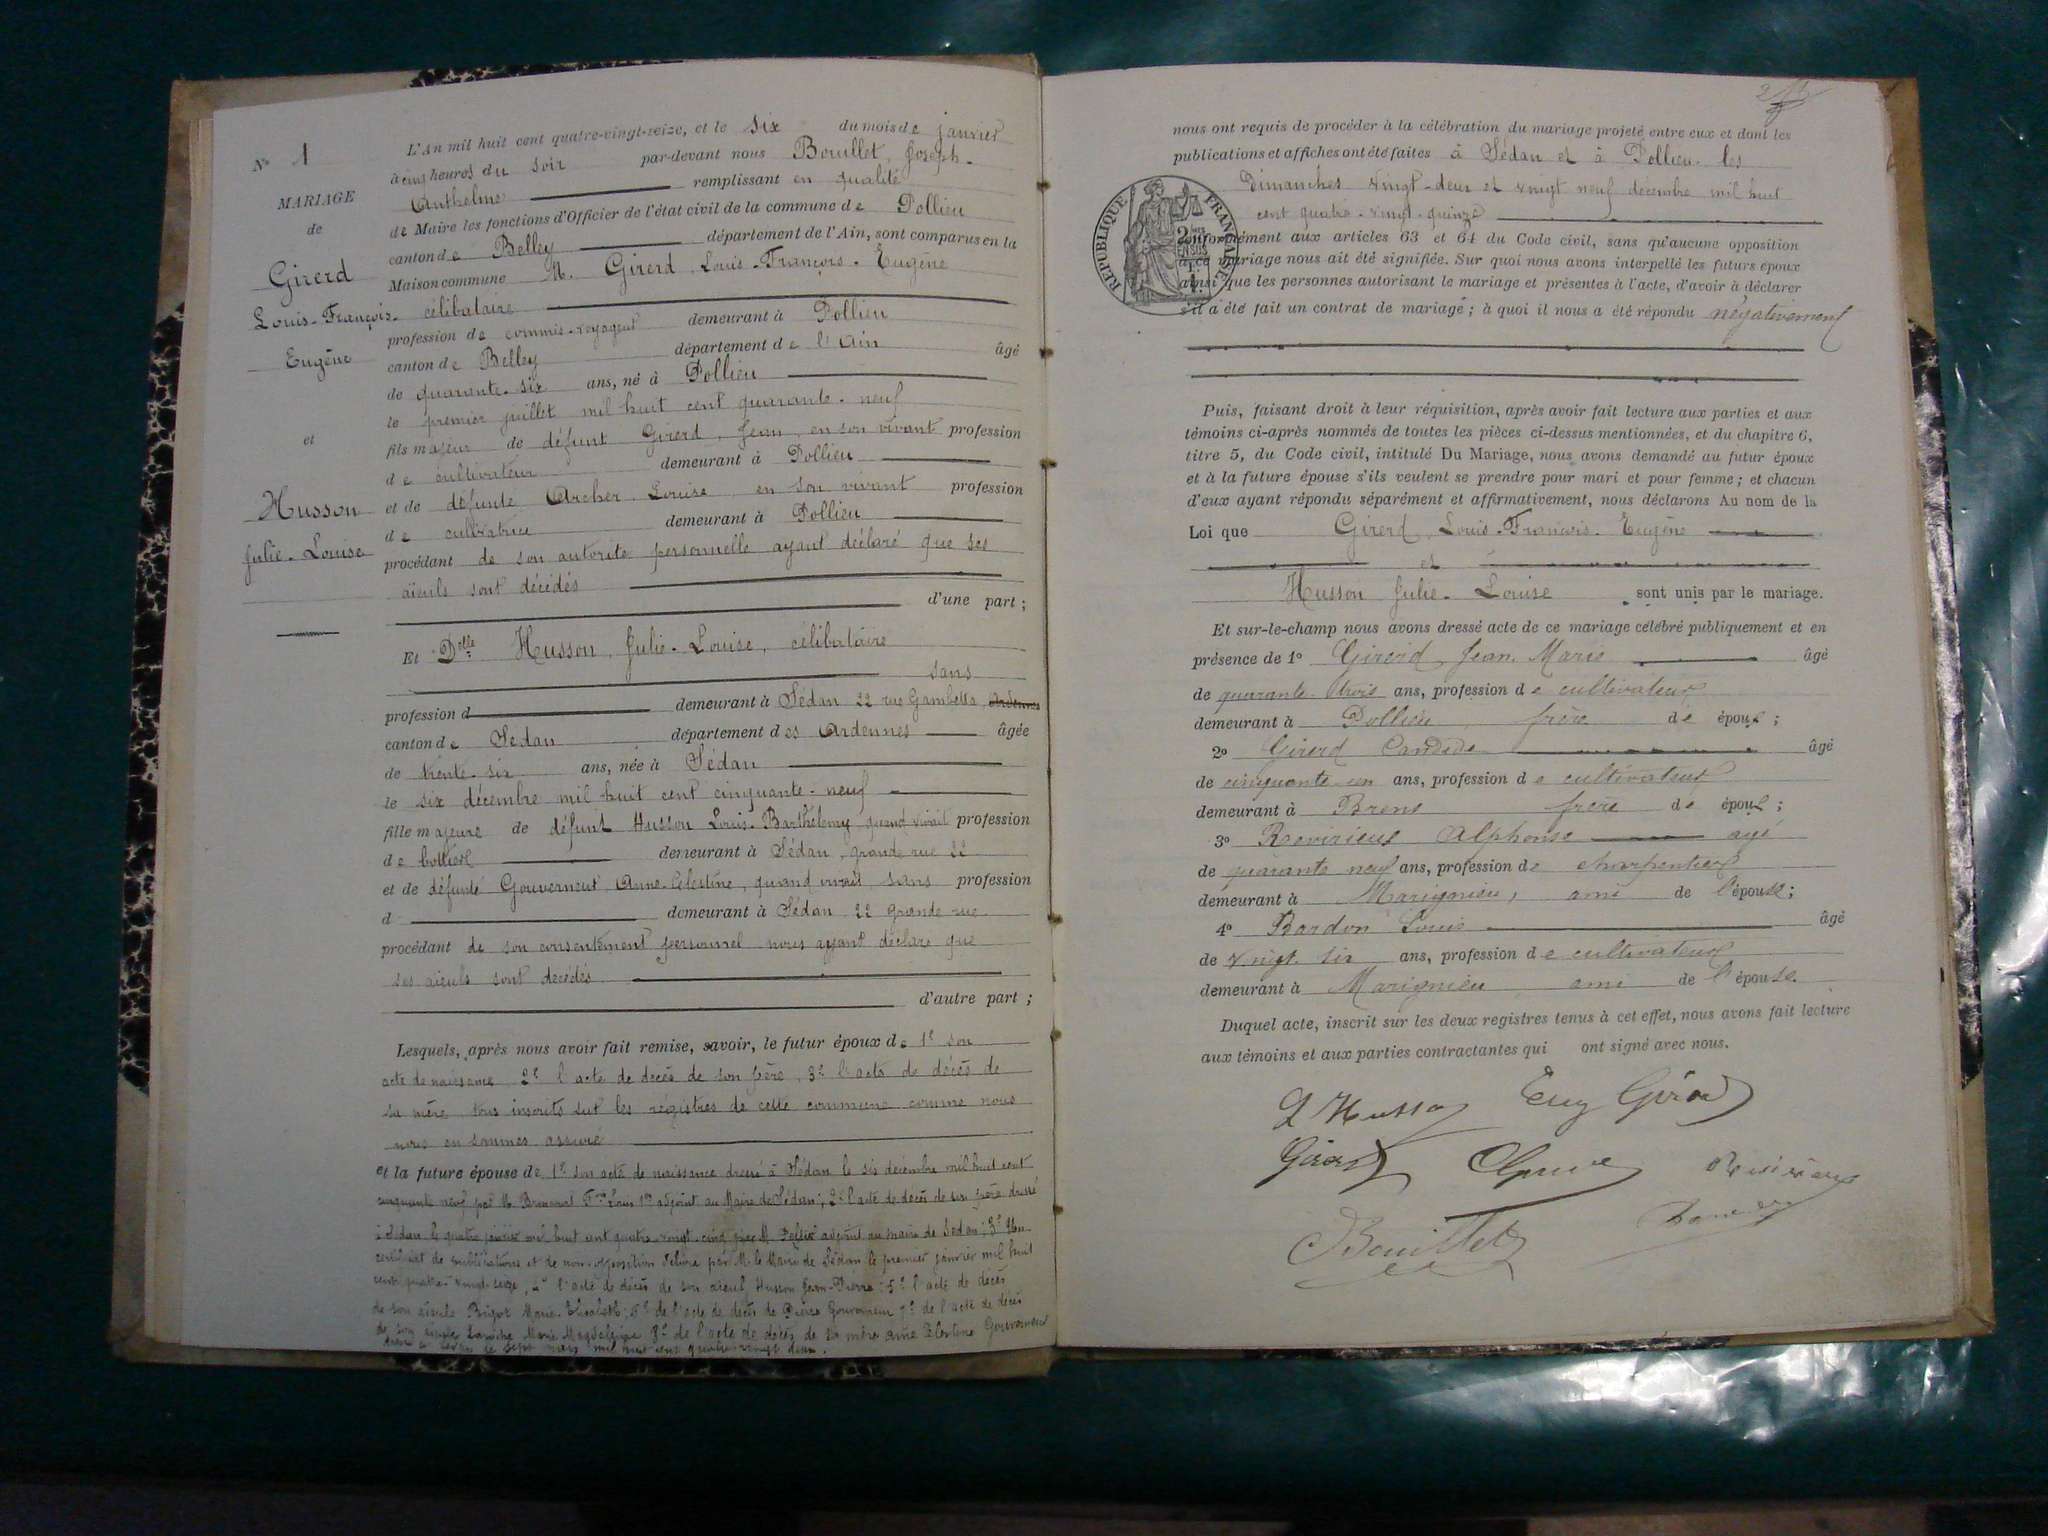 N° 1
MARIAGE
de
Girerd
Louis-François-
Eugène
et
Husson
Julie-Louise
L'An mil huit cent quatre-vingt-seize, et le six du mois de janvier
à cinq heures du soir par-devant nous Bouillet, Joseph-
Anthelme remplissant en qualité
de Maire les fonctions d'Officier de l'état civil de la commune de Pollieu
canton de Belley département de l'Ain, sont comparus en la
Maison commune M. Girerd, Louis-François-Eugène
célibataire
profession de commis-voyageur demeurant à Pollieu
canton de Belley département de l'Ain âgé
de quarante-six ans, né à Pollieu
le premier juillet mil huit cent quarante-neuf
fils majeur de défunt Girerd, Jean, en son vivant profession
de cultivateur demeurant à Pollieu
et de défunte Archer, Louise, en son vivant profession
de cultivatrice demeurant à Pollieu
procédant de son autorité personnelle ayant déclaré que ses
aïeuls sont décédés
d'une part ;
Et Delle Husson, Julie-Louise, célibataire
sans
profession d demeurant à Sédan 22 rue Gambetta Ardennes
canton de Sedan département des Ardennes âgée
de trente-six ans, née à Sédan
le six décembre mil huit cent cinquante-neuf
fille majeure de défunt Husson Louis-Barthélemy quand vivait profession
de demeurant à Sédan, grande rue 22
et de défunte Gouverneur, Anne-Célestine, quand vivait sans profession
d demeurant à Sédan 22 grande rue
procédant de son consentement personnel nous ayant déclaré que
ses aïeuls sont décédés
d'autre part ;
Lesquels, après nous avoir fait remise, savoir, le futur époux de 1° son
acte de naissance 2° l'acte de décès de son père, 3° l'acte de décès de
sa mère tous inscrits sur les régistres de cette commune comme nous
nous en sommes assuré
et la future épouse de 1° son acte de naissance dressé à Sédan le six décembre mil huit cent
cinquante neuf par M. Louis 1er adjoint au Maire de Sédan ; 2° l'acte de décès de son père dressé
à Sédan le quatre janvier mil huit cent quatre-vingt-cinq par M. adjoint au maire de Sedan ; 3° Un
certificat de publications et de non-opposition délivré par M. le Maire de Sédan le premier janvier mil huit
cent quatre-vingt-seize, 4° l'acte de décès de son aïeul, Husson Jean-Pierre ; 5° l'acte de décès
de son aïeule Marie-Elisabeth ; 6° de l'acte de décès de Pierre Gouverneur 7° de l'acte de décès
de son aïeule Laroche Marie Magdeleine 8° de l'acte de décès de sa mère Anne Célestine Gouverneur
le sept mars mil huit cent quatre-vingt deux.
nous ont requis de procéder à la célébration du mariage projeté entre eux et dont les
publications et affiches ont été faites à Sédan et à Pollieu les
Dimanches vingt-deux et vingt neuf décembre mil huit
cent quatre-vingt-quinze
RÉPUBLIQUE FRANÇAISE
conformément aux articles 63 et 64 du Code civil, sans qu'aucune opposition
à ce mariage nous ait été signifiée. Sur quoi nous avons interpellé les futurs époux
ainsi que les personnes autorisant le mariage et présentes à l'acte, d'avoir à déclarer
s'il a été fait un contrat de mariage ; à quoi il nous a été répondu négativement
Puis, faisant droit à leur réquisition, après avoir fait lecture aux parties et aux
témoins ci-après nommés de toutes les pièces ci-dessus mentionnées, et du chapitre 6,
titre 5, du Code civil, intitulé Du Mariage, nous avons demandé au futur époux
et à la future épouse s'ils veulent se prendre pour mari et pour femme ; et chacun
d'eux ayant répondu séparément et affirmativement, nous déclarons Au nom de la
Loi que Girerd, Louis-François-Eugène
et
Husson Julie-Louise sont unis par le mariage.
Et sur-le-champ nous avons dressé acte de ce mariage célébré publiquement et en
présence de 1° Girerd, Jean Marie âgé
de quarante-trois ans, profession de cultivateur
demeurant à Pollieu, frère de époux ;
2° Girerd Candide âgé
de cinquante un ans, profession de cultivateur
demeurant à Brens frère de époux ;
3° Revirieux Alphonse agé
de quarante neuf ans, profession de charpentier
demeurant à Marignieu, ami de l'épouse ;
4° Bardon Louis âgé
de vingt six ans, profession de cultivateur
demeurant à Marignieu, ami de l'épouse.
Duquel acte, inscrit sur les deux registres tenus à cet effet, nous avons fait lecture
aux témoins et aux parties contractantes qui ont signé avec nous.
L Husson Eug Girerd
Girerd Revirieux
Bouillet